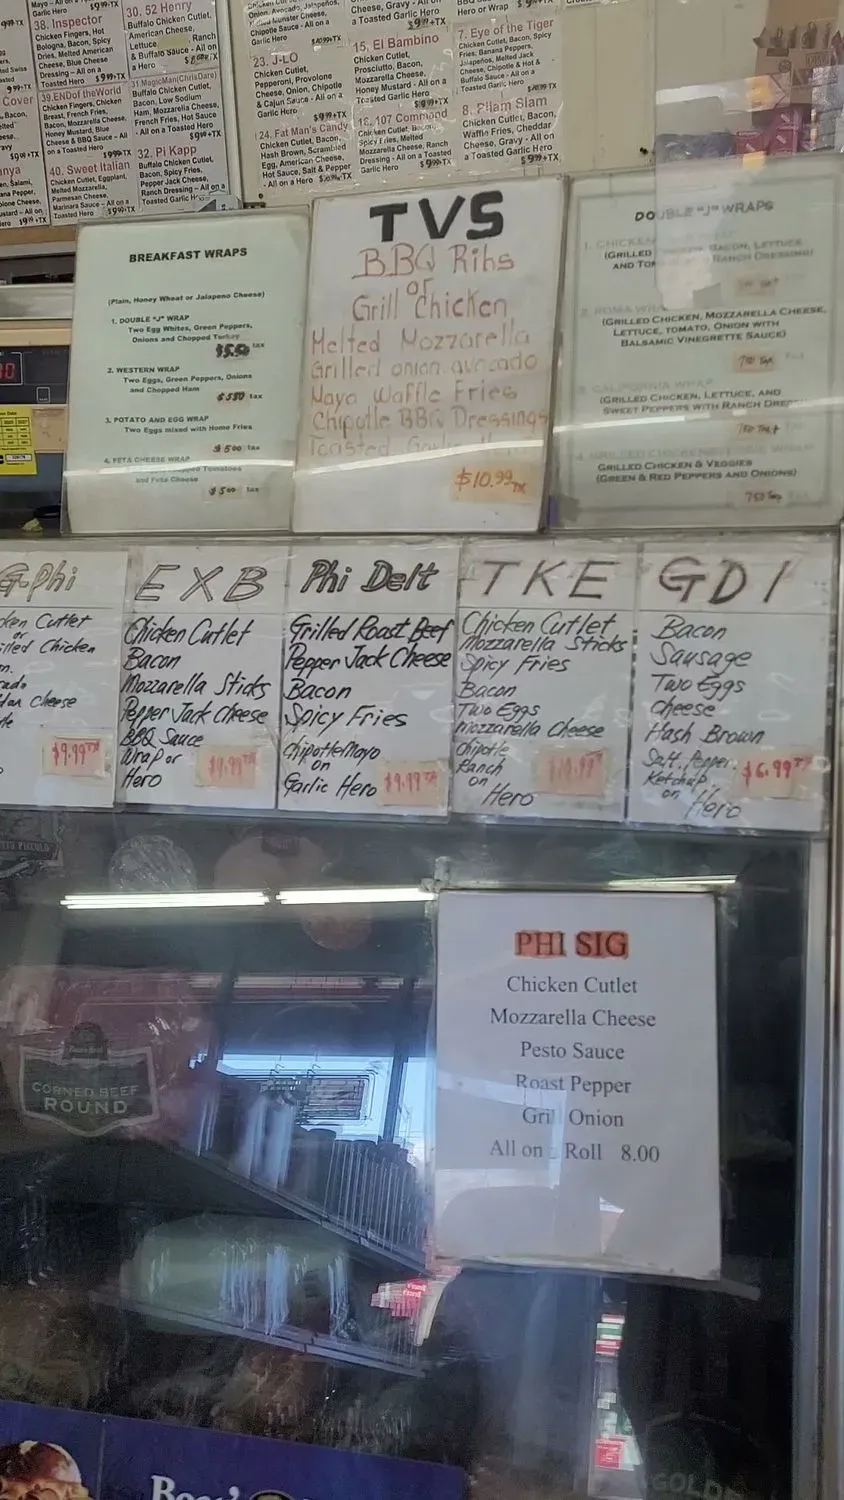 Mayo - All on a
Toasted Hero
38. Inspector
Chicken Fingers, Hot
Bologna, Bacon, Spicy
Fries, Melted American
Cheese, Blue Cheese
Dressing - All on a
Toasted Hero $9.99+TX
39. END of the World
Chicken Fingers, Chicken
Breast, French Fries,
Bacon, Mozzarella Cheese,
Honey Mustard, Blue
Cheese & BBQ Sauce - All
on a Toasted Hero
$9.99+TX
40. Sweet Italian
Chicken Cutlet, Eggplant,
Melted Mozzarella,
Parmesan Cheese,
Marinara Sauce - All on a
Toasted Hero $9.99+TX
30. 52 Henry
Buffalo Chicken Cutlet,
American Cheese,
Lettuce Ranch
& Buffalo Sauce - All on
a Hero
31. MagicMan(ChrisDare)
Chicken Cutlet,
Bacon, Low Sodium
Ham, Mozzarella Cheese,
French Fries, Hot Sauce
- All on a Toasted Hero
$9.99+TX
32. Pi Kapp
Buffalo Chicken Cutlet,
Bacon, Spicy Fries,
Pepper Jack Cheese,
Ranch Dressing - All on a
Toasted Hero
Onion, Avocado, Jalapeños,
Melted Munster Cheese,
Chipotle Sauce - All on a
Garlic Hero $10.99+TX
23. J-LO
Chicken Cutlet,
Pepperoni, Provolone
Cheese, Onion, Chipotle
& Cajun Sauce - All on a
Garlic Hero
$9.99+TX
24. Fat Man's Candy
Chicken Cutlet, Bacon,
Hash Brown, Scrambled
Egg, American Cheese,
Hot Sauce, Salt & Pepper
- All on a Hero
Cheese, Gravy - All on
a Toasted Garlic Hero
$9.99+TX
15. El Bambino
Chicken Cutlet,
Prosciutto, Bacon,
Mozzarella Cheese,
Honey Mustard - All on a
Toasted Garlic Hero
$9.99+TX
16. 107 Command
Chicken Cutlet, Bacon,
Spicy Fries, Melted
Mozzarella Cheese, Ranch
Dressing - All on a Toasted
Garlic Hero $9.99+TX
Hero or Wrap
7. Eye of the Tiger
Chicken Cutlet, Bacon, Spicy
Fries, Banana Peppers,
Jalapeños, Melted Jack
Cheese, Chipotle & Hot &
Buffalo Sauce - All on a
Toasted Garlic Hero
$10.99+TX
8. Pilam Slam
Chicken Cutlet, Bacon,
Waffle Fries, Cheddar
Cheese, Gravy - All on
a Toasted Garlic Hero
$9.99+TX
BREAKFAST WRAPS
(Plain, Honey Wheat or Jalapeno Cheese)
1. DOUBLE "J" WRAP
Two Egg Whites, Green Peppers,
Onions and Chopped Turkey
$5.50 tax
2. WESTERN WRAP
Two Eggs, Green Peppers, Onions
and Chopped Ham
$5.50 tax
3. POTATO AND EGG WRAP
Two Eggs mixed with Home Fries
$5.00 tax
4. FETA CHEESE WRAP
Tomatoes
and Feta Cheese
$5.00 tax
TVS
BBQ Ribs
or
Grill Chicken
Melted Mozzarella
Grilled onion avocado
Mayo Waffle Fries
Chipotle BBQ Dressings
Toasted Garlic Hero
$10.99 TX
DOUBLE "J" WRAPS
1. CHICKEN
(GRILLED CHICKEN, BACON, LETTUCE
AND TOMATO RANCH DRESSING)
2. ROMA WRAP
(GRILLED CHICKEN, MOZZARELLA CHEESE,
LETTUCE, TOMATO, ONION WITH
BALSAMIC VINEGRETTE SAUCE)
750 Tax
3. CALIFORNIA WRAP
(GRILLED CHICKEN, LETTUCE, AND
SWEET PEPPERS WITH RANCH DRESSING)
750 Tax
4. GRILLED CHICKEN WRAP
GRILLED CHICKEN & VEGGIES
(GREEN & RED PEPPERS AND ONIONS)
750 Tax
G-Phi
Cutlet
or
Chicken
Cheese
$9.99 TX
EXB
Chicken Cutlet
Bacon
Mozzarella Sticks
Pepper Jack Cheese
BBQ Sauce
Wrap or
Hero
$9.99 TX
Phi Delt
Grilled Roast Beef
Pepper Jack Cheese
Bacon
Spicy Fries
Chipotle Mayo
on
Garlic Hero $9.99 TX
TKE
Chicken Cutlet
Mozzarella Sticks
Spicy Fries
Bacon
Two Eggs
Mozzarella Cheese
Chipotle
Ranch
on
Hero
GDI
Bacon
Sausage
Two Eggs
Cheese
Hash Brown
Salt. Pepper.
Ketchup
on Hero
$6.99 TX
PHI SIG
Chicken Cutlet
Mozzarella Cheese
Pesto Sauce
Roast Pepper
Grill Onion
All on a Roll 8.00
CORNED BEEF
ROUND
Boar's
GOLD